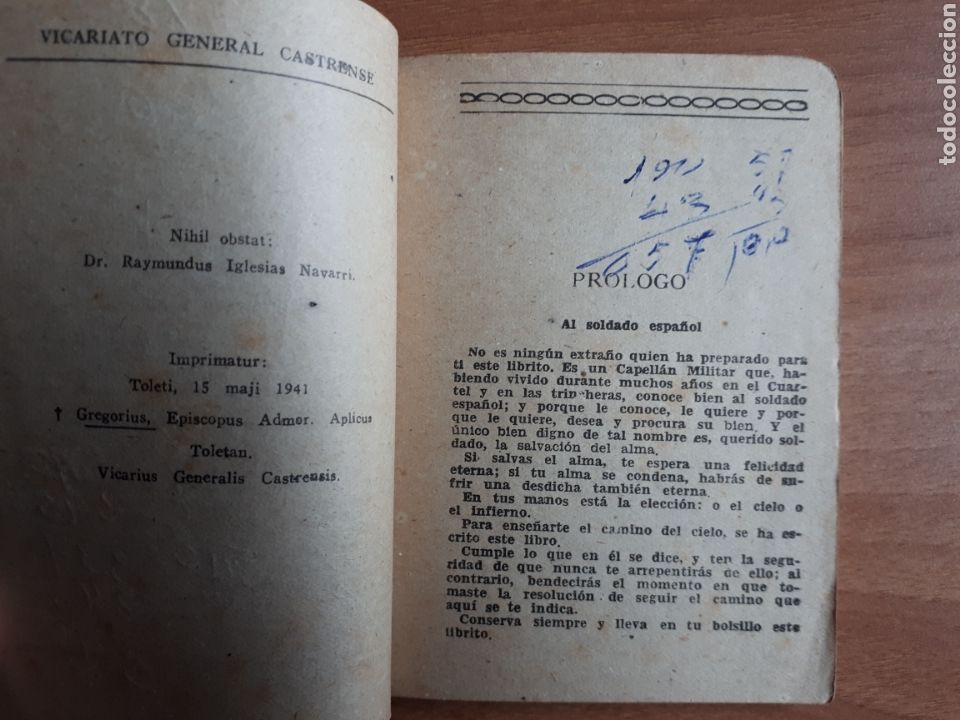 VICARIATO GENERAL CASTRENSE
Nihil obstat:
Dr. Raymundus Iglesias Navarri.
Imprimatur:
Toleti, 15 maji 1941
† Gregorius, Episcopus Admor. Aplicus
Toletan.
Vicarius Generalis Castrensis.
PROLOGO
Al soldado español
No es ningún extraño quien ha preparado para
ti este librito. Es un Capellán Militar que, ha-
biendo vivido durante muchos años en el Cuar-
tel y en las trincheras, conoce bien al soldado
español; y porque le conoce, le quiere y por-
que le quiere, desea y procura su bien. Y el
único bien digno de tal nombre es, querido sol-
dado, la salvación del alma.
Si salvas el alma, te espera una felicidad
eterna; si tu alma se condena, habrás de su-
frir una desdicha también eterna.
En tus manos está la elección: o el cielo o
el infierno.
Para enseñarte el camino del cielo, se ha es-
crito este libro.
Cumple lo que en él se dice, y ten la segu-
ridad de que nunca te arrepentirás de ello; al
contrario, bendecirás el momento en que to-
maste la resolución de seguir el camino que
aquí se te indica.
Conserva siempre y lleva en tu bolsillo este
librito.
todocoleccion